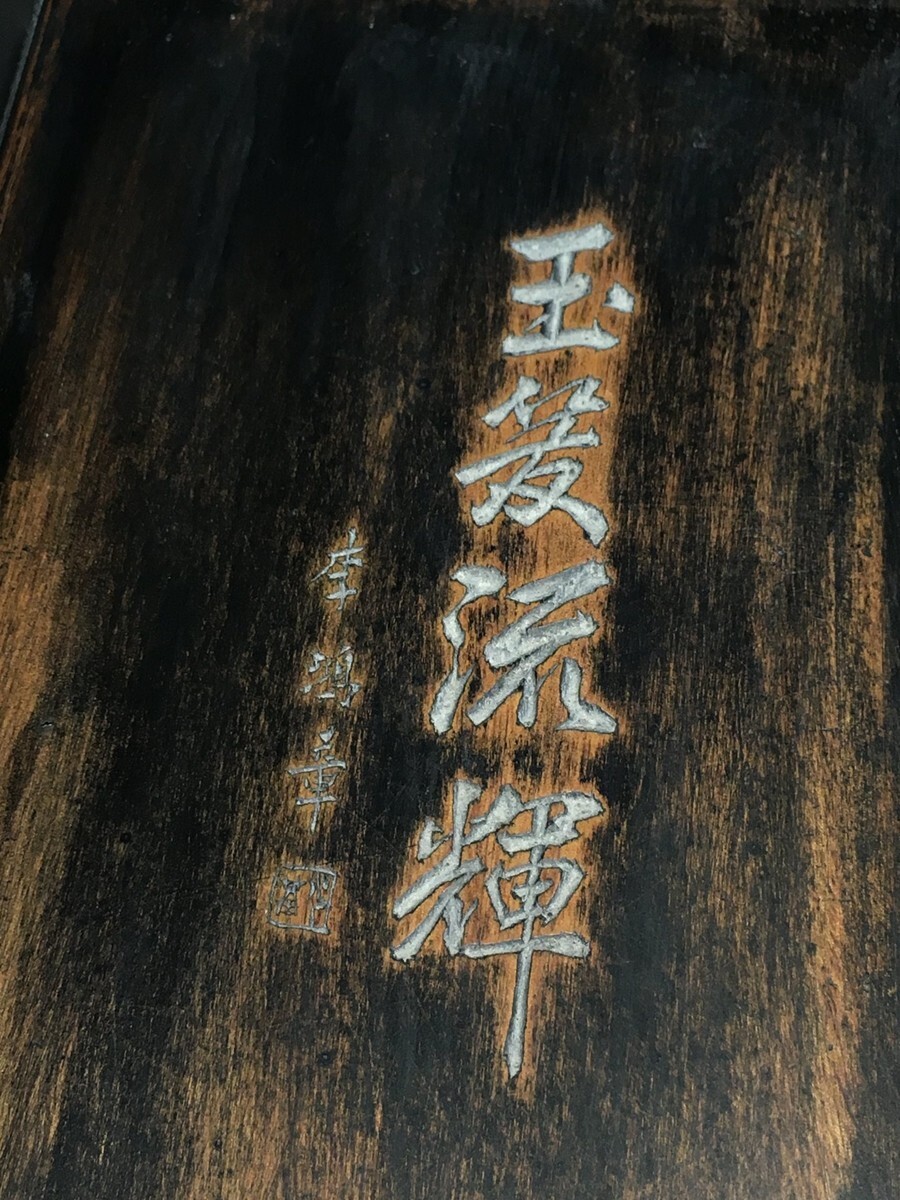 玉笈流輝
李鴻章